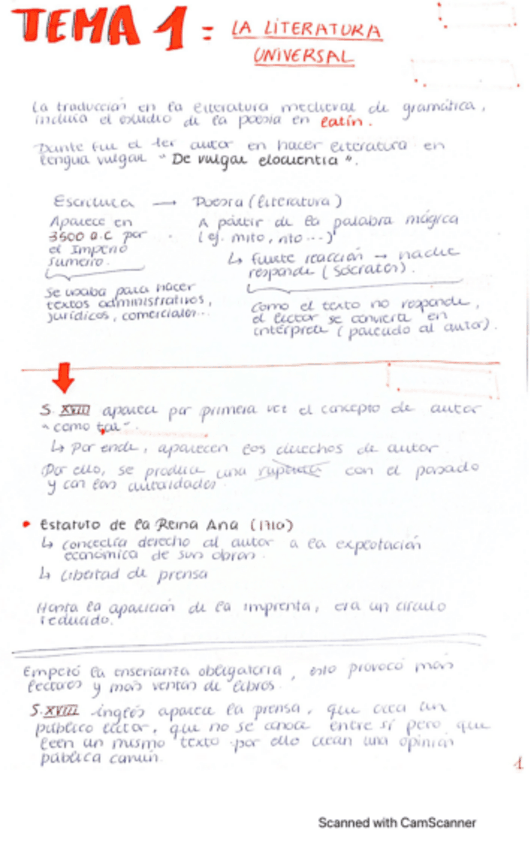 TEMA 1 = LA LITERATURA
UNIVERSAL
La traducción en la literatura medieval de gramática,
incluía el estudio de la poesía en latín.
Dante fue el 1er autor en hacer literatura en
lengua vulgar "De vulgar elocuentia".
Escritura → Poesía (literatura)
Aparece en
3500 a.C por
el Imperio
sumerio.
A partir de la palabra mágica
(ej. mito, rito...)
↳ fuerte reacción → nadie
responde (Sócrates).
Se usaba para hacer
textos administrativos,
jurídicos, comerciales...
Como el texto no responde,
el lector se convierte en
intérprete (parecido al autor).
S. XVIII aparece por primera vez el concepto de autor
"como tal".
↳ Por ende, aparecen los derechos de autor.
Por ello, se produce una ruptura con el pasado
y con las autoridades.
• Estatuto de la Reina Ana (1710)
↳ concedía derecho al autor a la explotación
económica de sus obras.
↳ Libertad de prensa
Hasta la aparición de la imprenta, era un círculo
reducido.
Empezó la enseñanza obligatoria, esto provocó más
lectores y más ventas de libros.
S. XVIII inglés aparece la prensa, que crea un
público lector, que no se conoce entre sí pero que
leen un mismo texto por ello crean una opinión
pública común.
1
Scanned with CamScanner